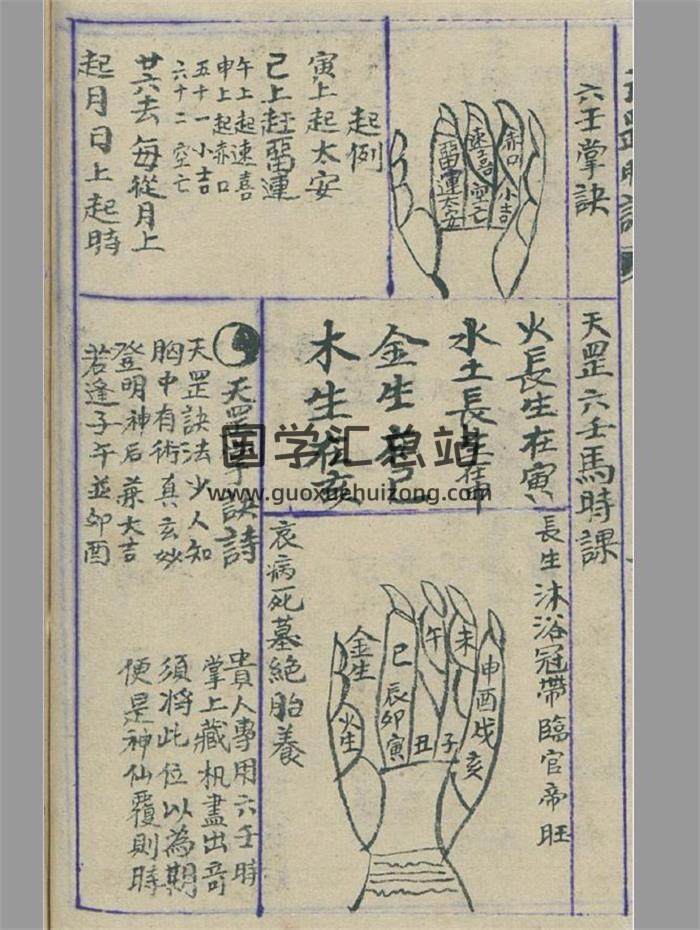 六壬掌訣
赤口
小吉
速喜
空亡
畱連
大安
起例
寅上起太安
巳上赶畱連
午上起速喜
申上起赤口
五十一小吉
六十二空亡
廿六去每從月上
起月日上起時
天罡六壬馬時課
火長生在寅
水土長生在申
金生在巳
木生在亥
長生沐浴冠帶臨官帝旺
衰病死墓絶胎養
金生
火生
巳
辰
卯
寅
午
丑
未
子
申
酉
戌
亥
天罡
訣詩
天罡訣法少人知
胸中有術真玄妙
登明神后兼大吉
若逢子午並卯酉
貴人專用六壬時
掌上藏机盡出奇
須將此位以為期
便是神仙覆則時
国学汇总站
www.guoxuehuizong.com